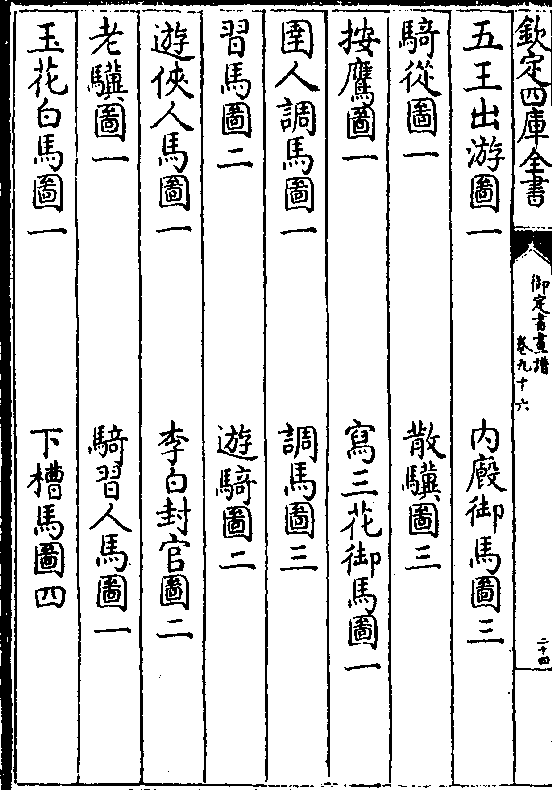 欽定四庫全書
御定書畫譜
卷九十六
二十四
五王出游圖一 內廄御馬圖三
騎從圖一 散驥圖三
按鷹圖一 寫三花御馬圖一
圉人調馬圖一 調馬圖三
習馬圖二 遊騎圖二
遊俠人馬圖一 李白封官圖二
老驥圖一 騎習人馬圖一
玉花白馬圖一 下槽馬圖四